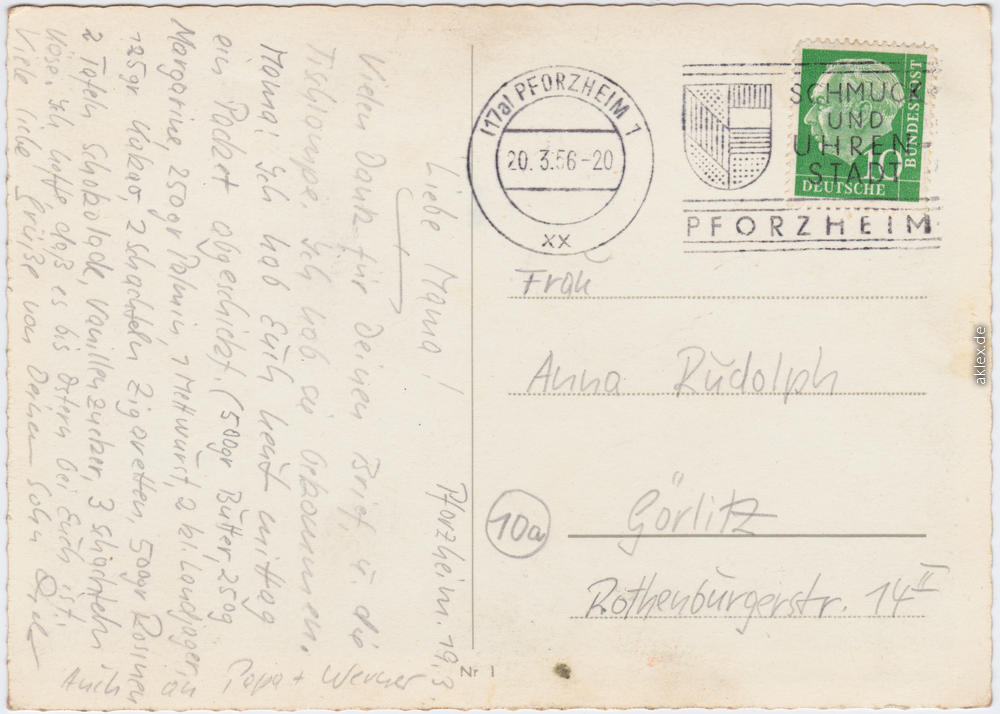 Pforzheim. 19.3.
Liebe Mama!
Vielen Dank für Deinen Brief, u. die
Tischlampe. Ich hab sie bekommen.
Mama! Ich hab Euch heut mittag
ein Packet abgeschickt. (500gr Butter, 250g
Margarine, 250gr Palmin, 1 Mettwurst, 2 kl. Landjäger,
125gr Kakao, 2 Schachteln Zigaretten, 500gr Rosinen
2 Tafeln Schokolade, Vanillenzucker, 3 Schachteln
Käse. Ich hoffe, daß es bis Ostern bei Euch ist.
Viele liebe Grüße von Deinem Sohn
Auch an Papa + Werner
(17a) PFORZHEIM 1
20. 3.56-20
XX
SCHMUCK
UND
UHREN-
STADT
PFORZHEIM
10
DEUTSCHE
BUNDESPOST
Frau
Anna Rudolph
10a
Görlitz
Rothenburgerstr. 14 II
Nr 1
aklex.de